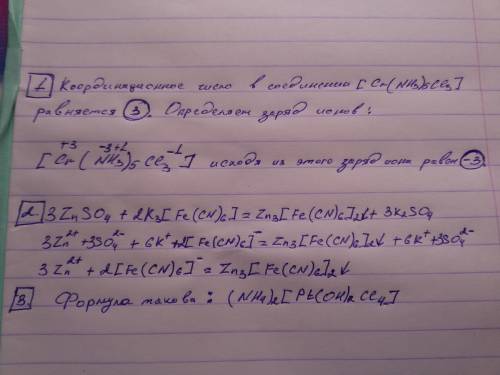 1. Координационное число в соединении [Cr(NH3)5Cl3]
равняется ③. Определяем заряд ионов:
[Cr⁺³(N⁻³H⁺¹3)5Cl3⁻¹] исходя из этого заряд иона равен -3.
2. 3ZnSO4 + 2K3[Fe(CN)6] = Zn3[Fe(CN)6]2↓ + 3K2SO4
3Zn²⁺ + 3SO4²⁻ + 6K⁺ + 2[Fe(CN)6]⁻ = Zn3[Fe(CN)6]2↓ + 6K⁺ + 3SO4²⁻
3Zn²⁺ + 2[Fe(CN)6]⁻ = Zn3[Fe(CN)6]2↓
3. Формула такова: (NH4)2[Pt(OH)2Cl4]